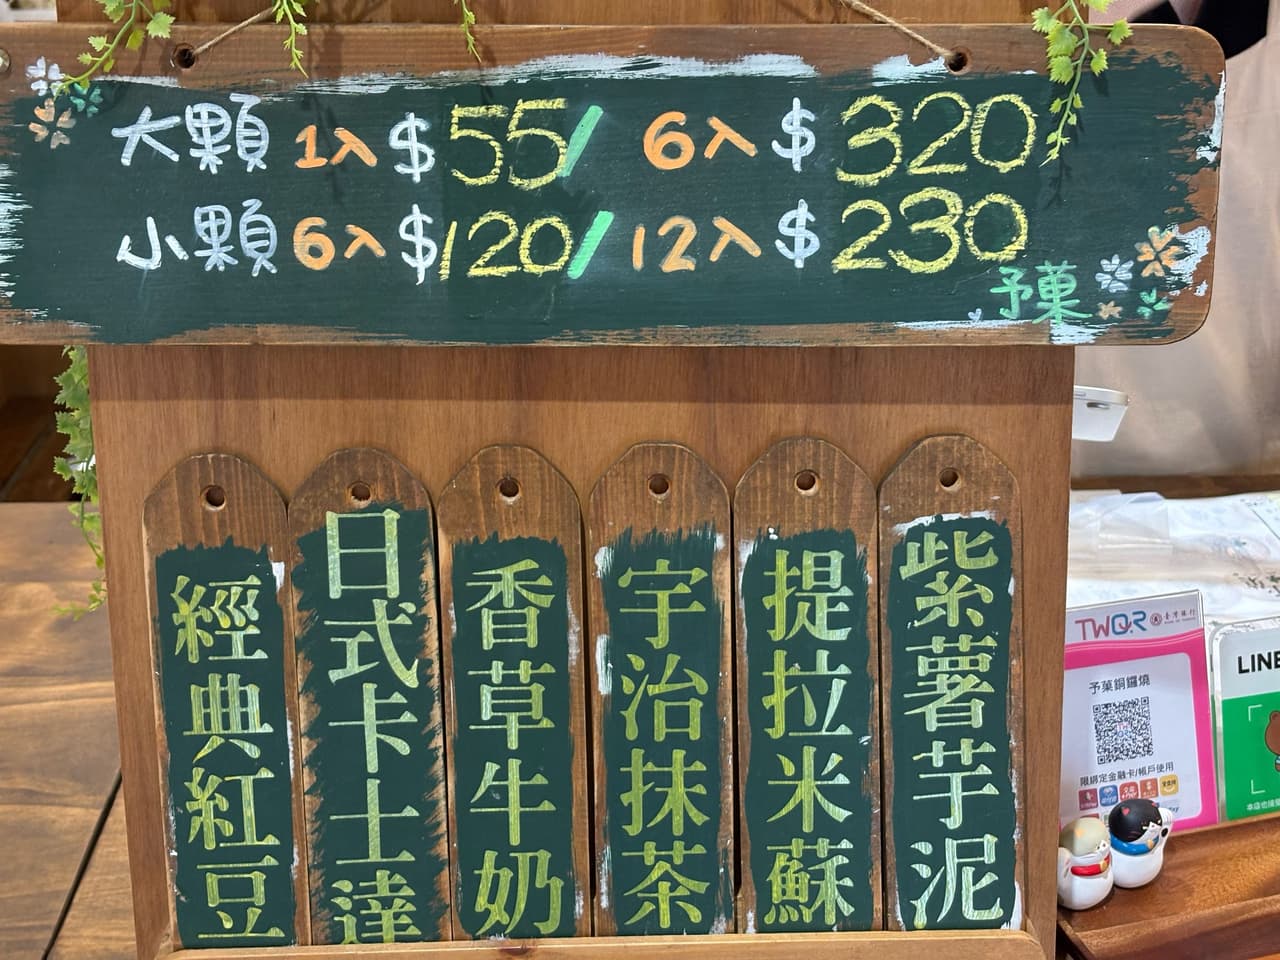 大顆 1入 $55 / 6入 $320
小顆 6入 $120 / 12入 $230
予菓
經典紅豆
日式卡士達
香草牛奶
宇治抹茶
提拉米蘇
紫薯芋泥
TWQR 臺灣銀行
予菓銅鑼燒
限綁定金融卡/帳戶使用
LINE